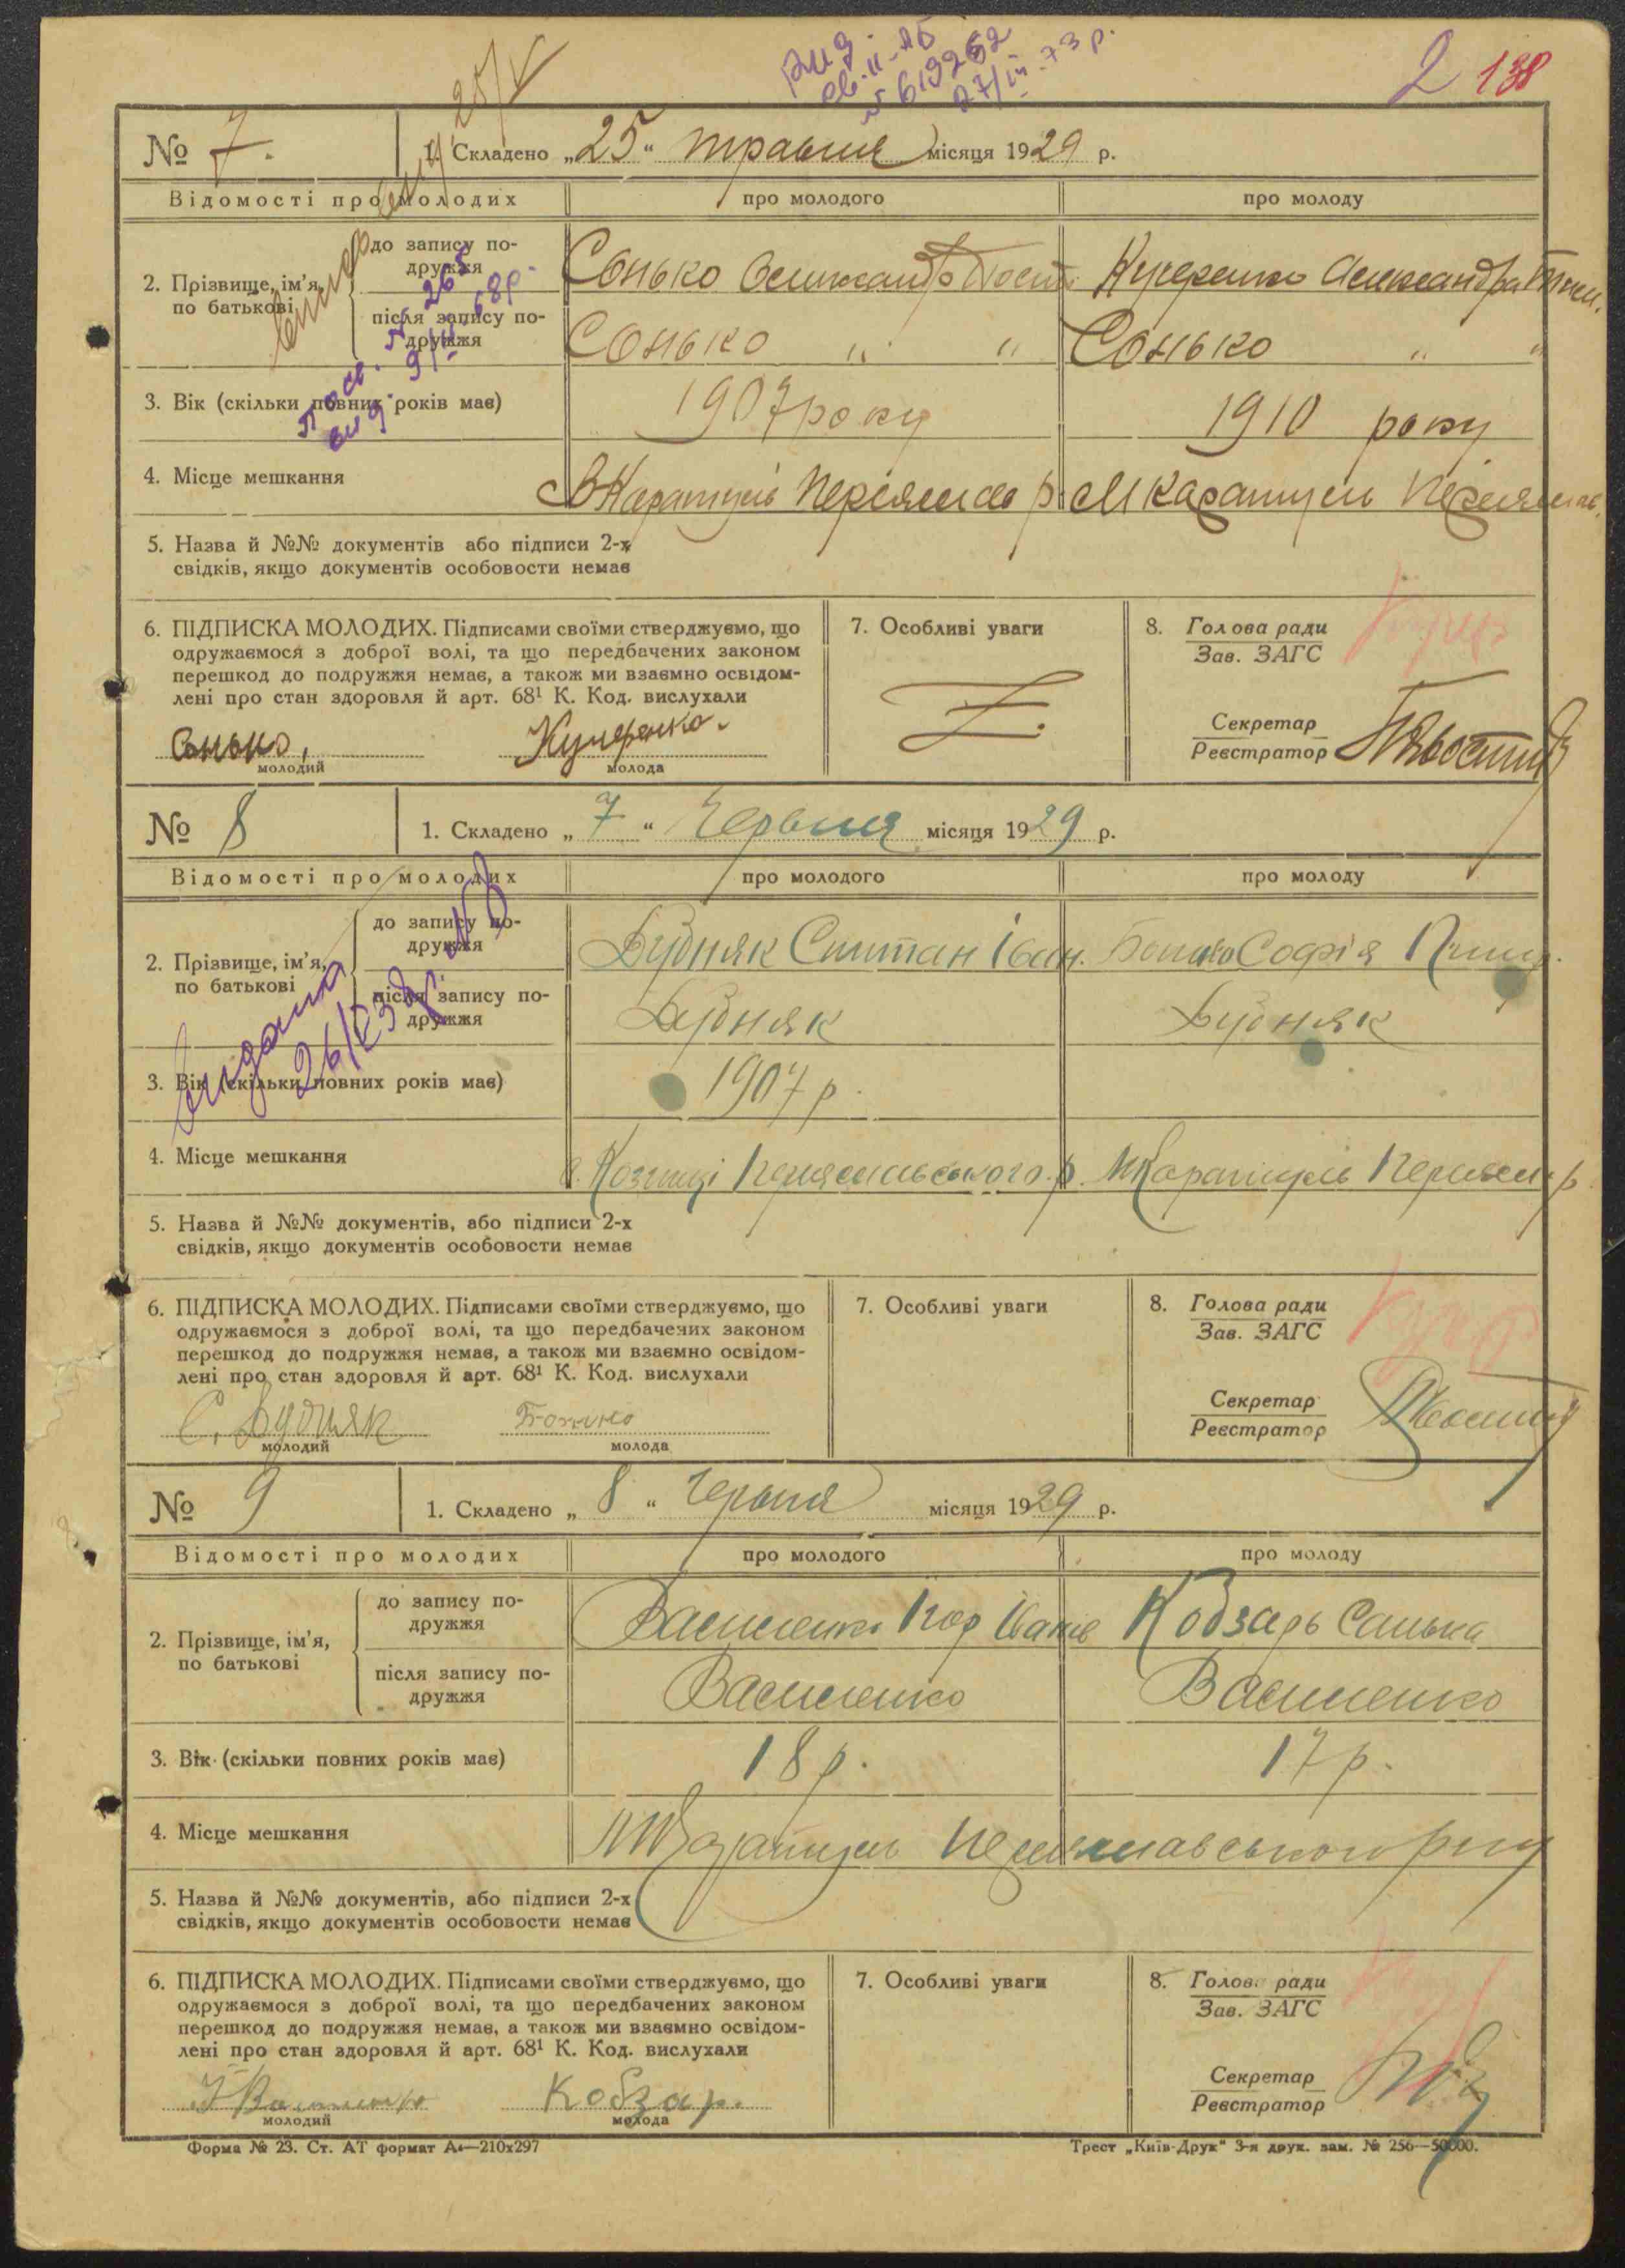 2 138
25/V
№ 7. 1. Складено „25“ травня місяця 1929 р.
Відомості про молодих про молодого про молоду
2. Прізвище, ім’я, по батькові
до запису подружжя Сонько Кучеренко
після запису подружжя Сонько " " Сонько " "
3. Вік (скільки повних років має) 1907 року 1910 року
4. Місце мешкання М Каратуль
5. Назва й №№ документів або підписи 2-х
свідків, якщо документів особовости немає
6. ПІДПИСКА МОЛОДИХ. Підписами своїми стверджуємо, що
одружаємося з доброї волі, та що передбачених законом
перешкод до подружжя немає, а також ми взаємно освідом-
лені про стан здоровля й арт. 68¹ К. Код. вислухали
Сонько, Кучеренко.
молодий молода
7. Особливі уваги
8. Голова ради
Зав. ЗАГС
Секретар
Реєстратор
№ 8 1. Складено „ 7 “ Червня місяця 1929 р.
Відомості про молодих про молодого про молоду
2. Прізвище, ім’я, по батькові
до запису подружжя Будняк Степан Іван. Софія
після запису подружжя Будняк Будняк
видано
3. Вік (скільки повних років має) 1907 р.
4. Місце мешкання Переяславського р. М Каратуль
5. Назва й №№ документів, або підписи 2-х
свідків, якщо документів особовости немає
6. ПІДПИСКА МОЛОДИХ. Підписами своїми стверджуємо, що
одружаємося з доброї волі, та що передбачених законом
перешкод до подружжя немає, а також ми взаємно освідом-
лені про стан здоровля й арт. 68¹ К. Код. вислухали
С. Будняк
молодий молода
7. Особливі уваги
8. Голова ради
Зав. ЗАГС
Секретар
Реєстратор
№ 9 1. Складено „ 8 “ Червня місяця 1929 р.
Відомості про молодих про молодого про молоду
2. Прізвище, ім’я, по батькові
до запису подружжя Василенко Кобзарь
після запису подружжя Василенко Василенко
3. Вік (скільки повних років має) 18 р. 17 р.
4. Місце мешкання М Каратуль Переяславського р-ну
5. Назва й №№ документів, або підписи 2-х
свідків, якщо документів особовости немає
6. ПІДПИСКА МОЛОДИХ. Підписами своїми стверджуємо, що
одружаємося з доброї волі, та що передбачених законом
перешкод до подружжя немає, а також ми взаємно освідом-
лені про стан здоровля й арт. 68¹ К. Код. вислухали
Кобзар.
молодий молода
7. Особливі уваги
8. Голова ради
Зав. ЗАГС
Секретар
Реєстратор
Форма № 23. Ст. АТ формат А₄—210х297 Трест „Київ-Друк“ 3-я друк. зам. № 256—50000.